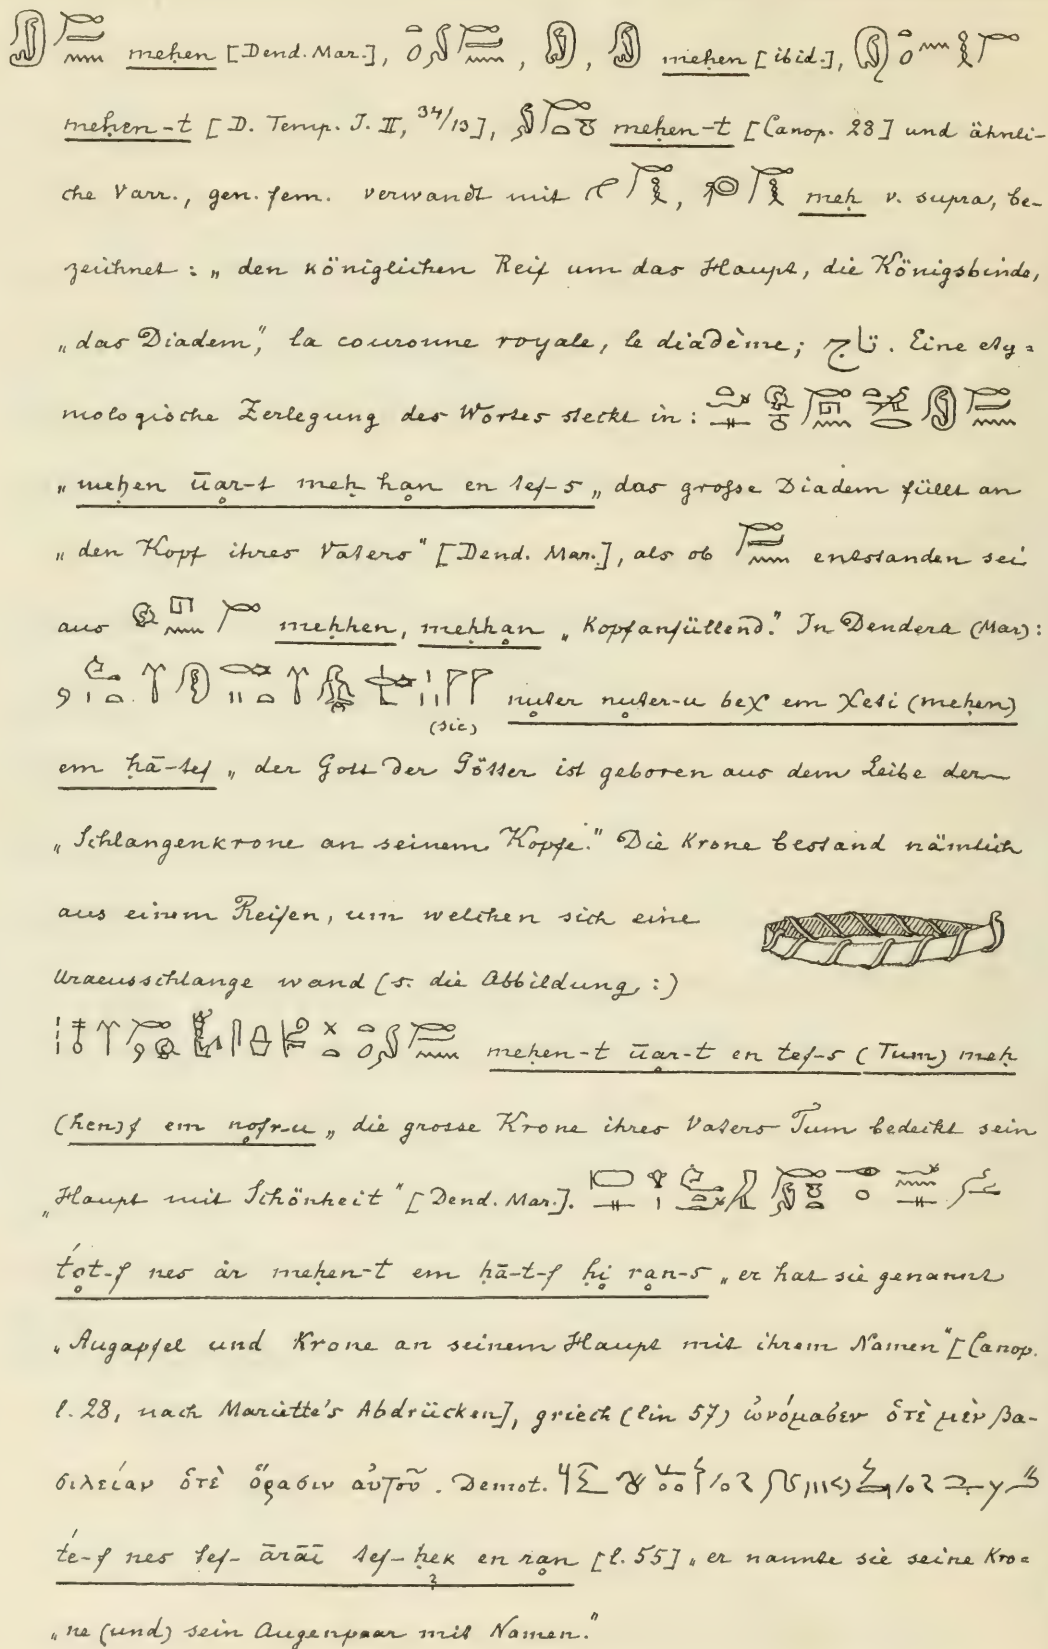 meḥen [Dend. Mar.], , , meḥen [ibid.],
meḥen-t [D. Temp. J. II, 34/13], meḥen-t [Canop. 28] und ähnli-
che Varr., gen. fem. verwandt mit , meḥ v. supra, be-
zeichnet: „den königlichen Reif um das Haupt, die Königsbinde,
„das Diadem“, la couronne royale, le diadème; تاج. Eine ety-
mologische Zerlegung des Wortes steckt in:
„meḥen ūar-t meḥ han en tef-s „das grofse Diadem füllt an
„den Kopf ihres Vaters“ [Dend. Mar.], als ob entstanden sei
aus meḥhen, meḥhan „Kopfanfüllend.“ In Dendera (Mar):
(sic) nuter nuter-u beχ em χeti (meḥen)
em ḥā-tef „der Gott der Götter ist geboren aus dem Leibe der
„Schlangenkrone an seinem Kopfe.“ Die Krone bestand nämlich
aus einem Reifen, um welchen sich eine
Uraeusschlange wand (s. die Abbildung :)
meḥen-t ūar-t en tef-s (Tum) meḥ
(hen)f em nofr-u „die grosse Krone ihres Vaters Tum bedeckt sein
„Haupt mit Schönheit“ [Dend. Mar.].
t́ot-f nes ár meḥen-t em ḥā-t-f ḥi ran-s „er hat sie genannt
„Augapfel und Krone an seinem Haupt mit ihrem Namen“ [Canop.
l. 28, nach Mariette's Abdrücken], griech (lin 57) ὠνόμασεν ὁτὲ μὲν βα-
σιλείαν ὁτὲ ὅρασιν αὐτοῦ. Demot.
t́e-f nes tef- ārāī tef-ḥeκ en ran [l. 55] „er nannte sie seine Kro-
?
„ne (und) sein Augenpaar mit Namen.“